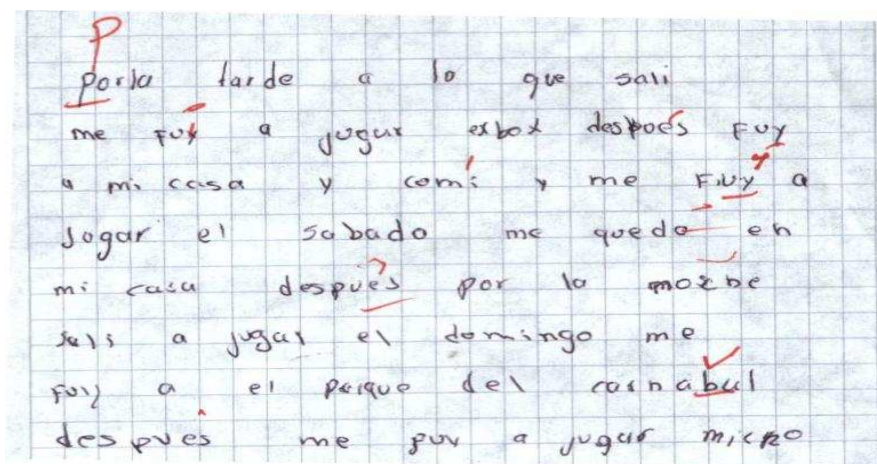 P
Porla tarde a lo que sali
me fuy a jugar exbox despoés fuy
a mi casa y comi y me Fuy a
Jogar el sabado me quedo en
mi casa después por la mocbe
sali a jugar el domingo me
fuy a el parque del carnabul
despues me fuy a jugar micro